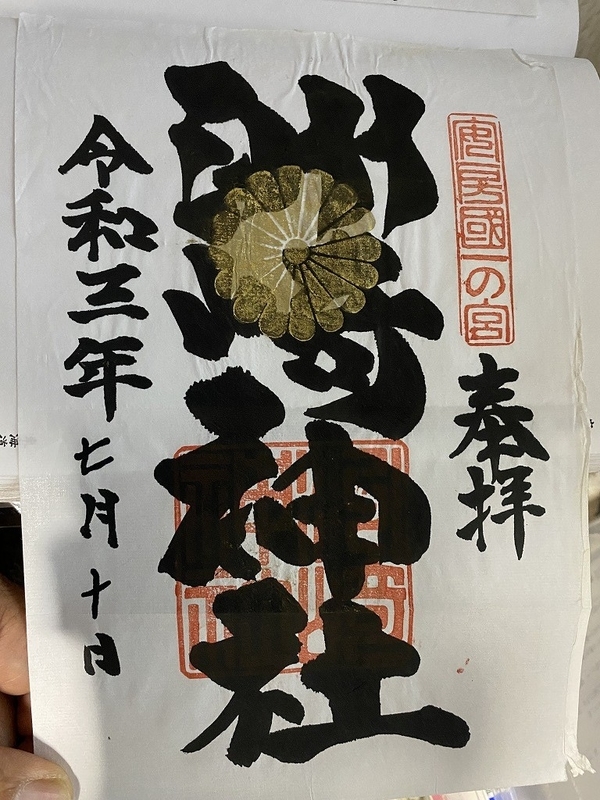 安房國一の宮
奉拝
洲崎神社
令和三年七月十日